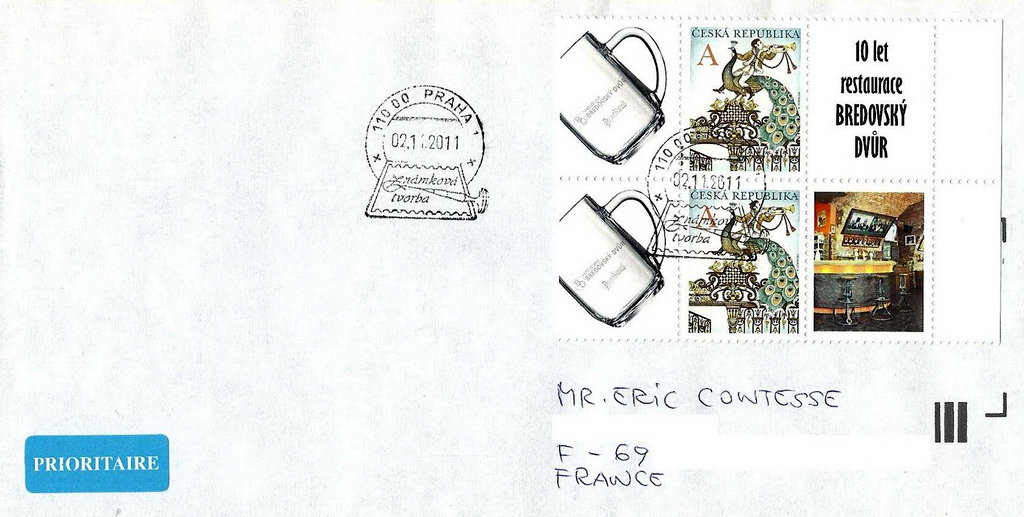 110 00 PRAHA 1
02.11.2011
Známková
tvorba
ČESKÁ REPUBLIKA
A
10 let
restaurace
BREDOVSKÝ
DVŮR
BREDOVSKÝ DVŮR
110 00
02.11.2011
Známková
tvorba
ČESKÁ REPUBLIKA
A
BREDOVSKÝ DVŮR
MR. ERIC CONTESSE
F - 69
FRANCE
PRIORITAIRE